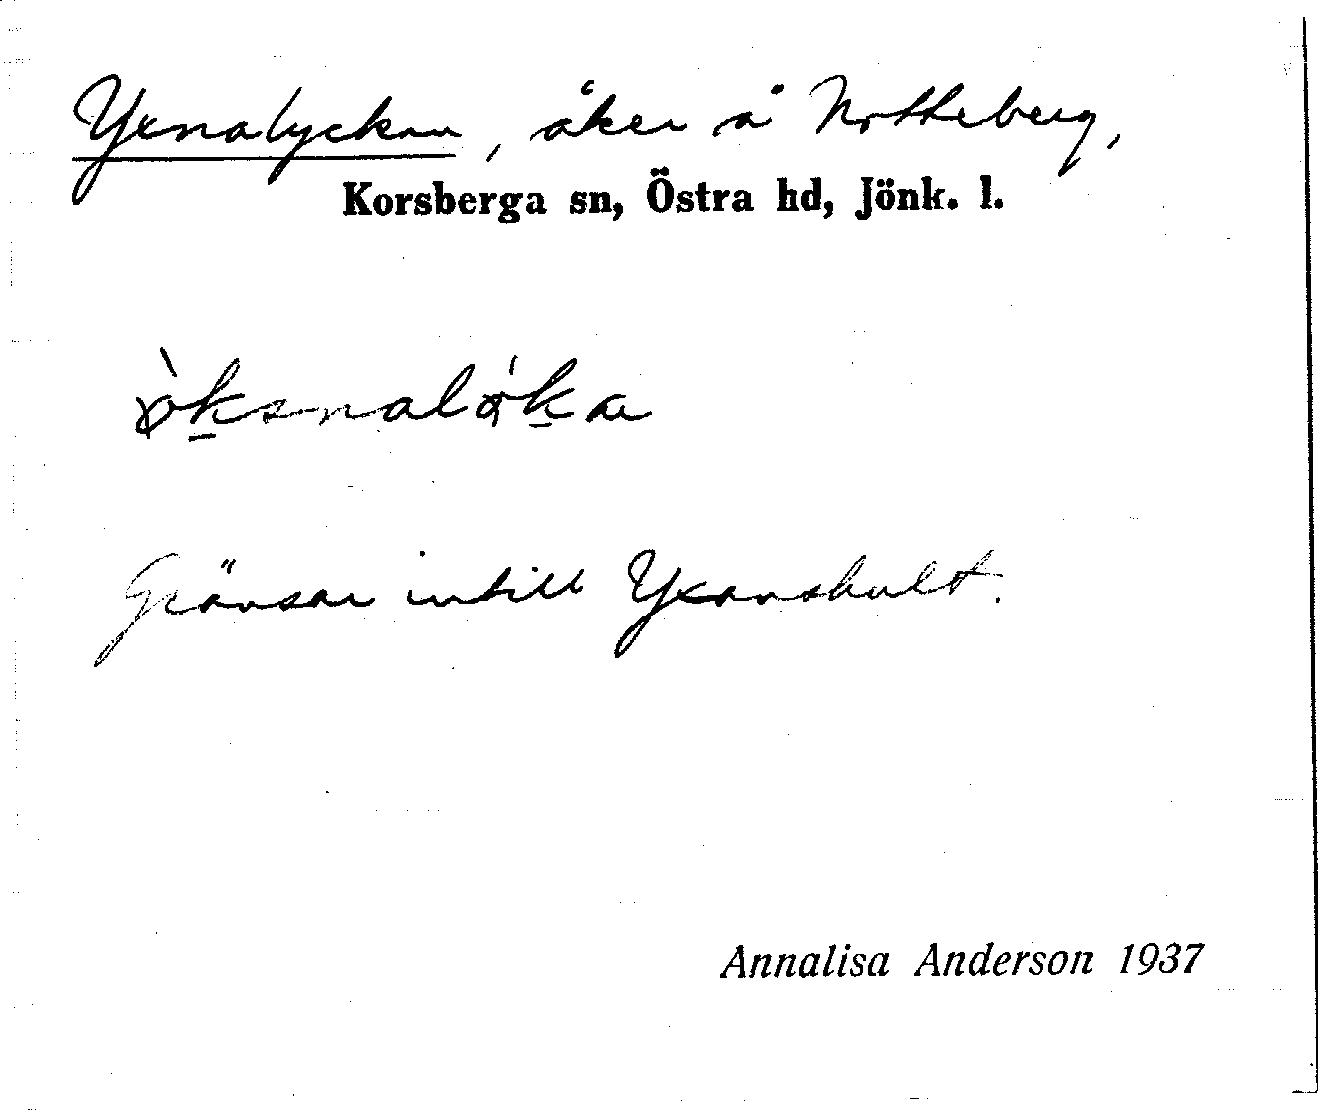 Yxnalyckan, åker å Notteberg,
Korsberga sn, Östra hd, Jönk. l.
Gränsar intill Yxanshult.
Annalisa Anderson 1937